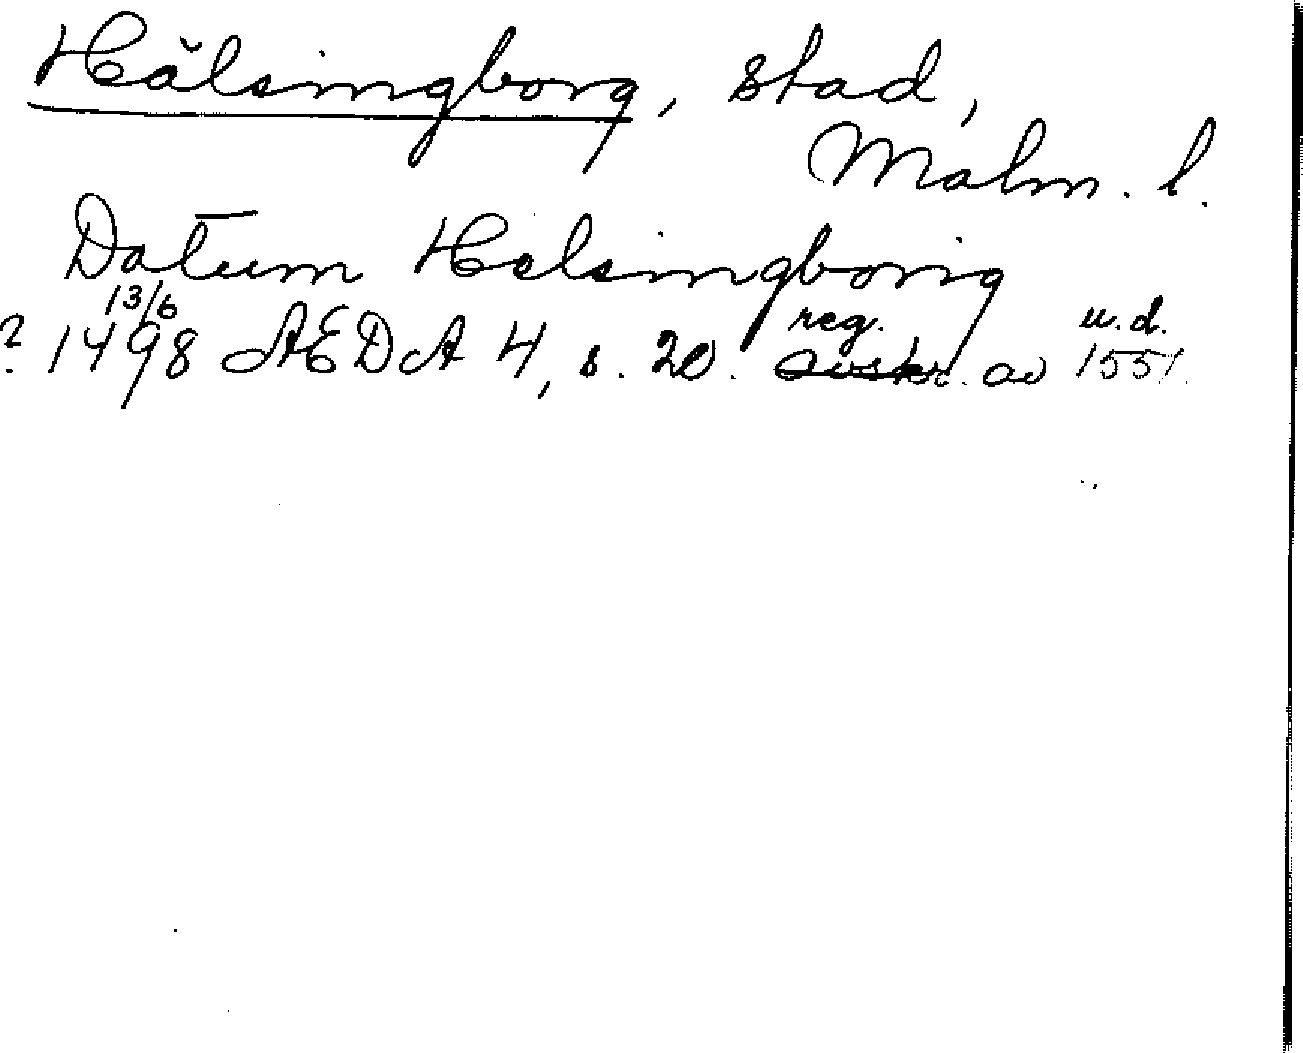 Hälsingborg, stad,
Malm. l.
Datum Helsingborig
13/6 reg. u.d.
? 1498 AEDA 4, s. 20. avskr. av 1551.